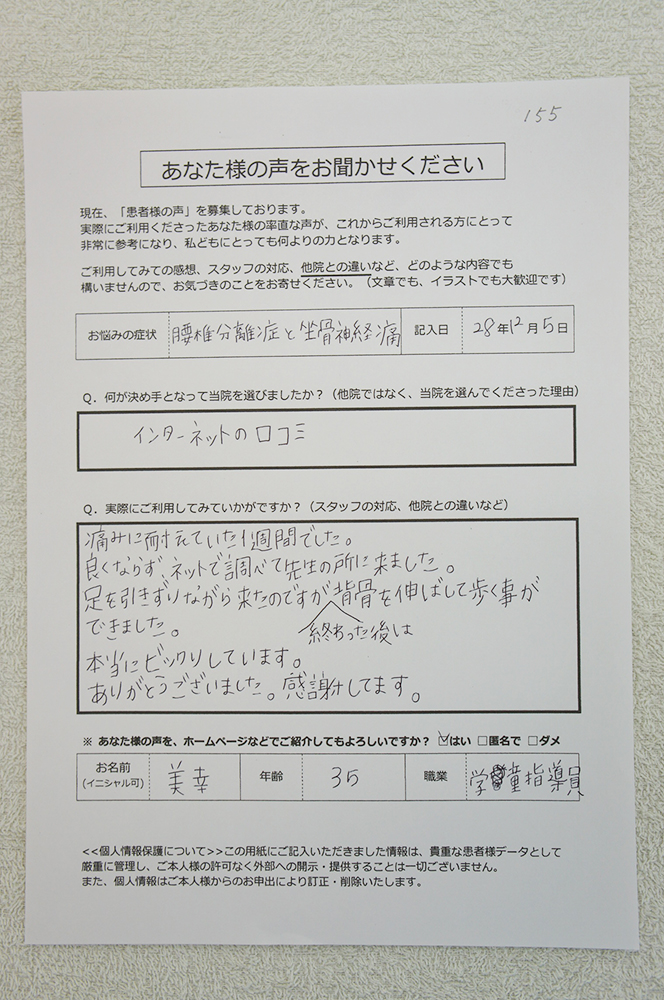 155
あなた様の声をお聞かせください
現在、「患者様の声」を募集しております。
実際にご利用くださったあなた様の率直な声が、これからご利用される方にとって
非常に参考になり、私どもにとっても何よりの力となります。
ご利用してみての感想、スタッフの対応、他院との違いなど、どのような内容でも
構いませんので、お気づきのことをお寄せください。（文章でも、イラストでも大歓迎です）
お悩みの症状 腰椎分離症と坐骨神経痛 記入日 28年12月5日
Q．何が決め手となって当院を選びましたか？（他院ではなく、当院を選んでくださった理由）
インターネットの口コミ
Q．実際にご利用してみていかがですか？（スタッフの対応、他院との違いなど）
痛みに耐えていた1週間でした。
良くならず、ネットで調べて先生の所に来ました。
足を引きずりながら来たのですが背骨を伸ばして歩く事が
終わった後は
できました。
本当にビックリしています。
ありがとうございました。感謝してます。
※ あなた様の声を、ホームページなどでご紹介してもよろしいですか？ ☑はい □匿名で □ダメ
お名前
(イニシャル可) 美幸 年齢 35 職業 学童指導員
<<個人情報保護について>>この用紙にご記入いただきました情報は、貴重な患者様データとして
厳重に管理し、ご本人様の許可なく外部への開示・提供することは一切ございません。
また、個人情報はご本人様からのお申出により訂正・削除いたします。